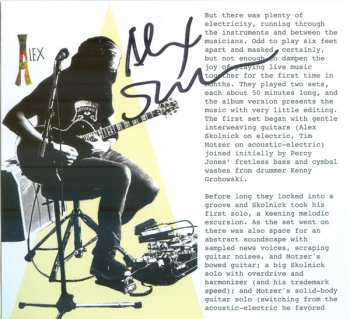 ALEX
Alex
But there was plenty of
electricity, running through
the instruments and between the
musicians. Odd to play six feet
apart and masked, certainly,
but not enough to dampen the
joy of playing live music
together for the first time in
months. They played two sets,
each about 50 minutes long, and
the album version presents the
music with very little editing.
The first set began with gentle
interweaving guitars (Alex
Skolnick on electric, Tim
Motzer on acoustic-electric)
joined initially by Percy
Jones' fretless bass and cymbal
washes from drummer Kenny
Grohowski.
Before long they locked into a
groove and Skolnick took his
first solo, a keening melodic
excursion. As the set went on
there was also space for an
abstract soundscape with
sampled news voices, scraping
guitar noises, and Motzer's
bowed guitar; a big Skolnick
solo with overdrive and
harmonizer (and his trademark
speed); and Motzer's solid-body
guitar solo (switching from the
acoustic-electric he favored